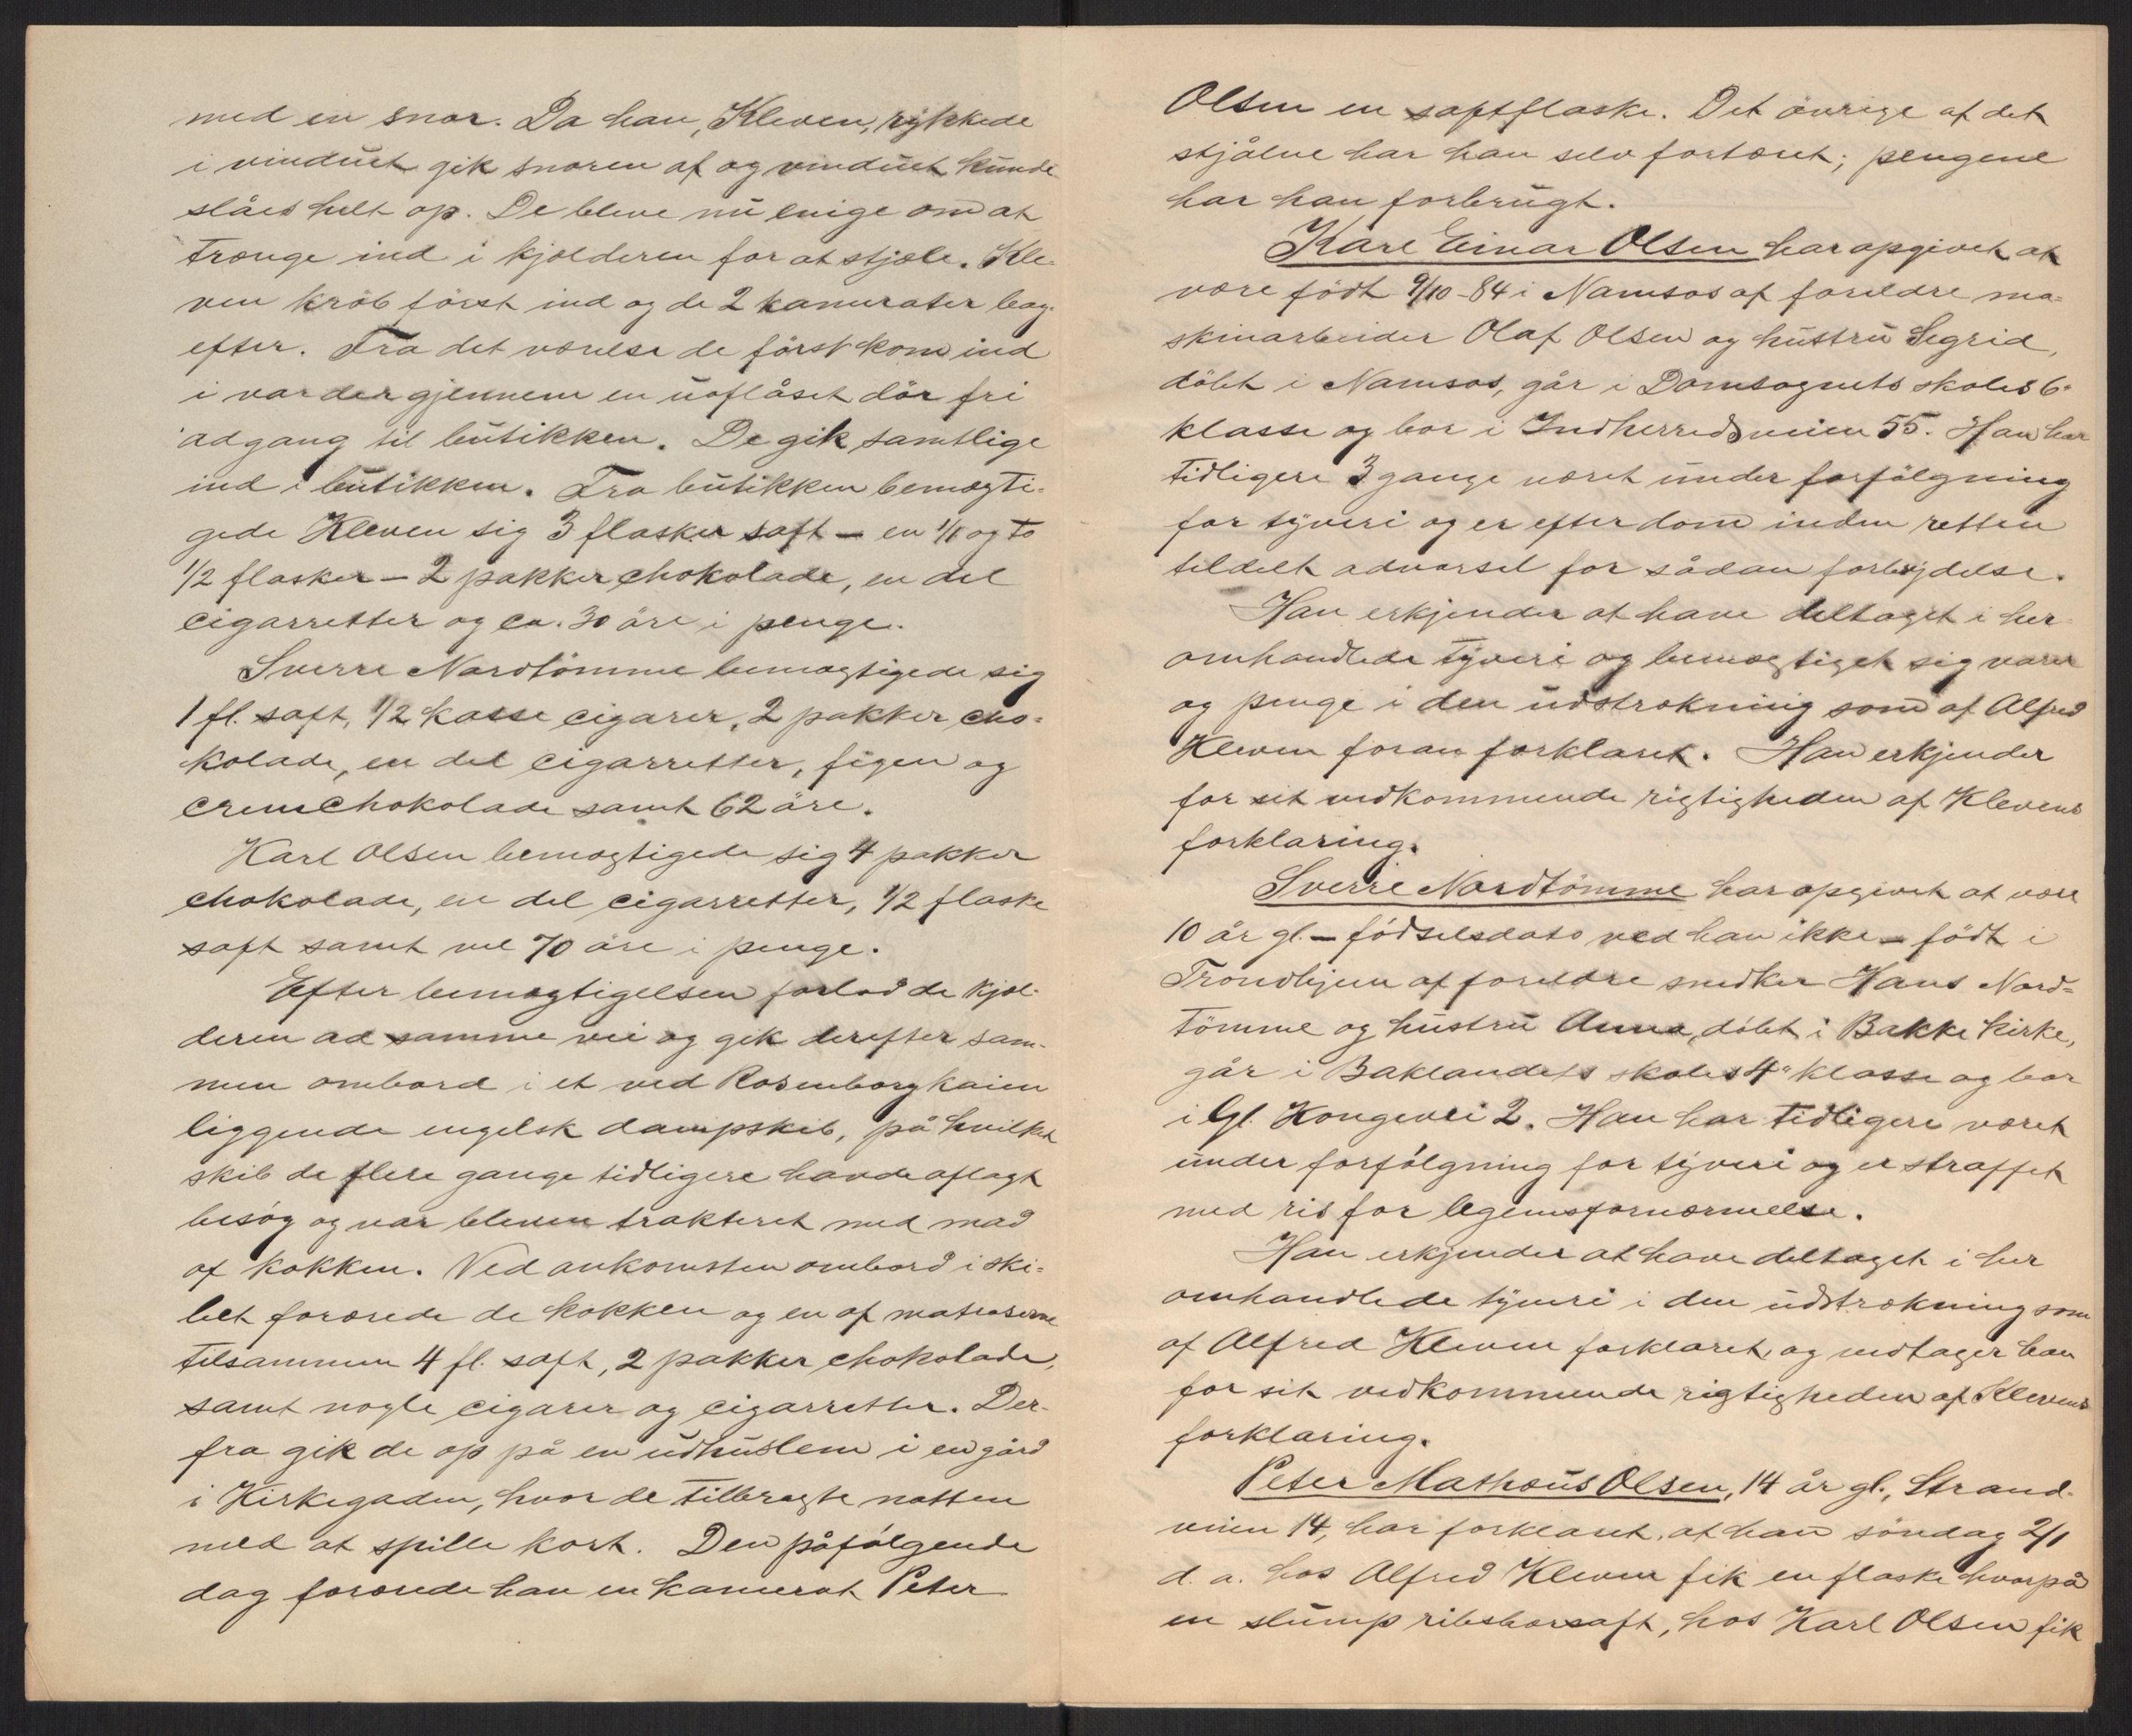 med en snor. Da han, Kleven, rykkede
i vinduet gik snoren af og vinduet kunde
slåes helt op. De bleve nu enige om at
trænge ind i kjælderen for at stjæle. Kle-
ven krøb först ind og de 2 kamerater bag-
efter. Fra det værelse de först kom ind
i var der gjennem en uaflåset dör fri
adgang til butikken. De gik samtlige
ind i butikken. Fra butikken bemægti-
gede Kleven sig 3 flasker saft – en 1/1 og to
1/2 flasker – 2 pakker chokolade, en del
cigarretter og ca. 30 öre i penge.
Sverre Nordtömme bemægtigede sig
1 fl. saft, 1/2 kasse cigarer, 2 pakker cho-
kolade, en del cigarretter, figen og
cremchokolade samt 62 öre.
Karl Olsen bemægtigede sig 4 pakker
chokolade, en del cigarretter, 1/2 flaske
saft samt vel 70 öre i penge.
Efter bemægtigelsen forlod de kjæl-
deren ad samme vei og gik derefter sam-
men ombord i et ved Rosenborgkaien
liggende engelsk dampskib, på hvilket
skib de flere gange tidligere havde aflagt
besög og var bleven trakteret med mad
af kokken. Ved ankomsten ombord i ski-
bet forærede de kokken og en af matroserne
tilsammen 4 fl. saft, 2 pakker chokolade,
samt nogle cigarer og cigarretter. Der-
fra gik de op på en udhuslem i en gård
i Kirkegaden, hvor de tilbragte natten
med at spille kort. Den påfölgende
dag forærede han en kamerat Peter
Olsen en saftflaske. Det övrige af det
stjålne har han selv fortæret; pengene
har han forbrugt.
Kare Einar Olsen har opgivet at
være födt 9/10-84 i Namsos af forældre ma-
skinarbeider Olaf Olsen og hustru Segrid,
döbt i Namsos, går i Domsognets skoles 6.
klasse og bor i Indherredsveien 55. Han har
tidligere 3 gange været under forfölgning
for tyveri og er efter dom inden retten
tildelt advarsel for sådan forbrydelse.
Han erkjender at have deltaget i her-
omhandlede tyveri og bemægtiget sig varer
og penge i den udstrækning som af Alfred
Kleven foran forklaret. Han erkjender
for sit vedkommende rigtigheden af Klevens
forklaring.
Sverre Nordtömme har opgivet at være
10 år gl. – födselsdato ved han ikke – födt i
Trondhjem af forældre snedker Hans Nord-
tömme og hustru Anna, döbt i Bakke kirke,
går i Baklandets skoles 4. klasse og bor
i Gl. Kongevei 2. Han har tidligere været
under forfölgning for tyveri og er straffet
med ris for legemsfornærmelse.
Han erkjender at have deltaget i her
omhandlede tyveri i den udstrækning som
af Alfred Kleven forklaret, og vedtager han
for sit vedkommende rigtigheden af Klevens
forklaring.
Peter Mathæus Olsen, 14 år gl., Strand-
veien 14, har forklaret, at han söndag 2/1
d. a. hos Alfred Kleven fik en flaske hvorpå
en slump ribsbærsaft, hos Karl Olsen fik